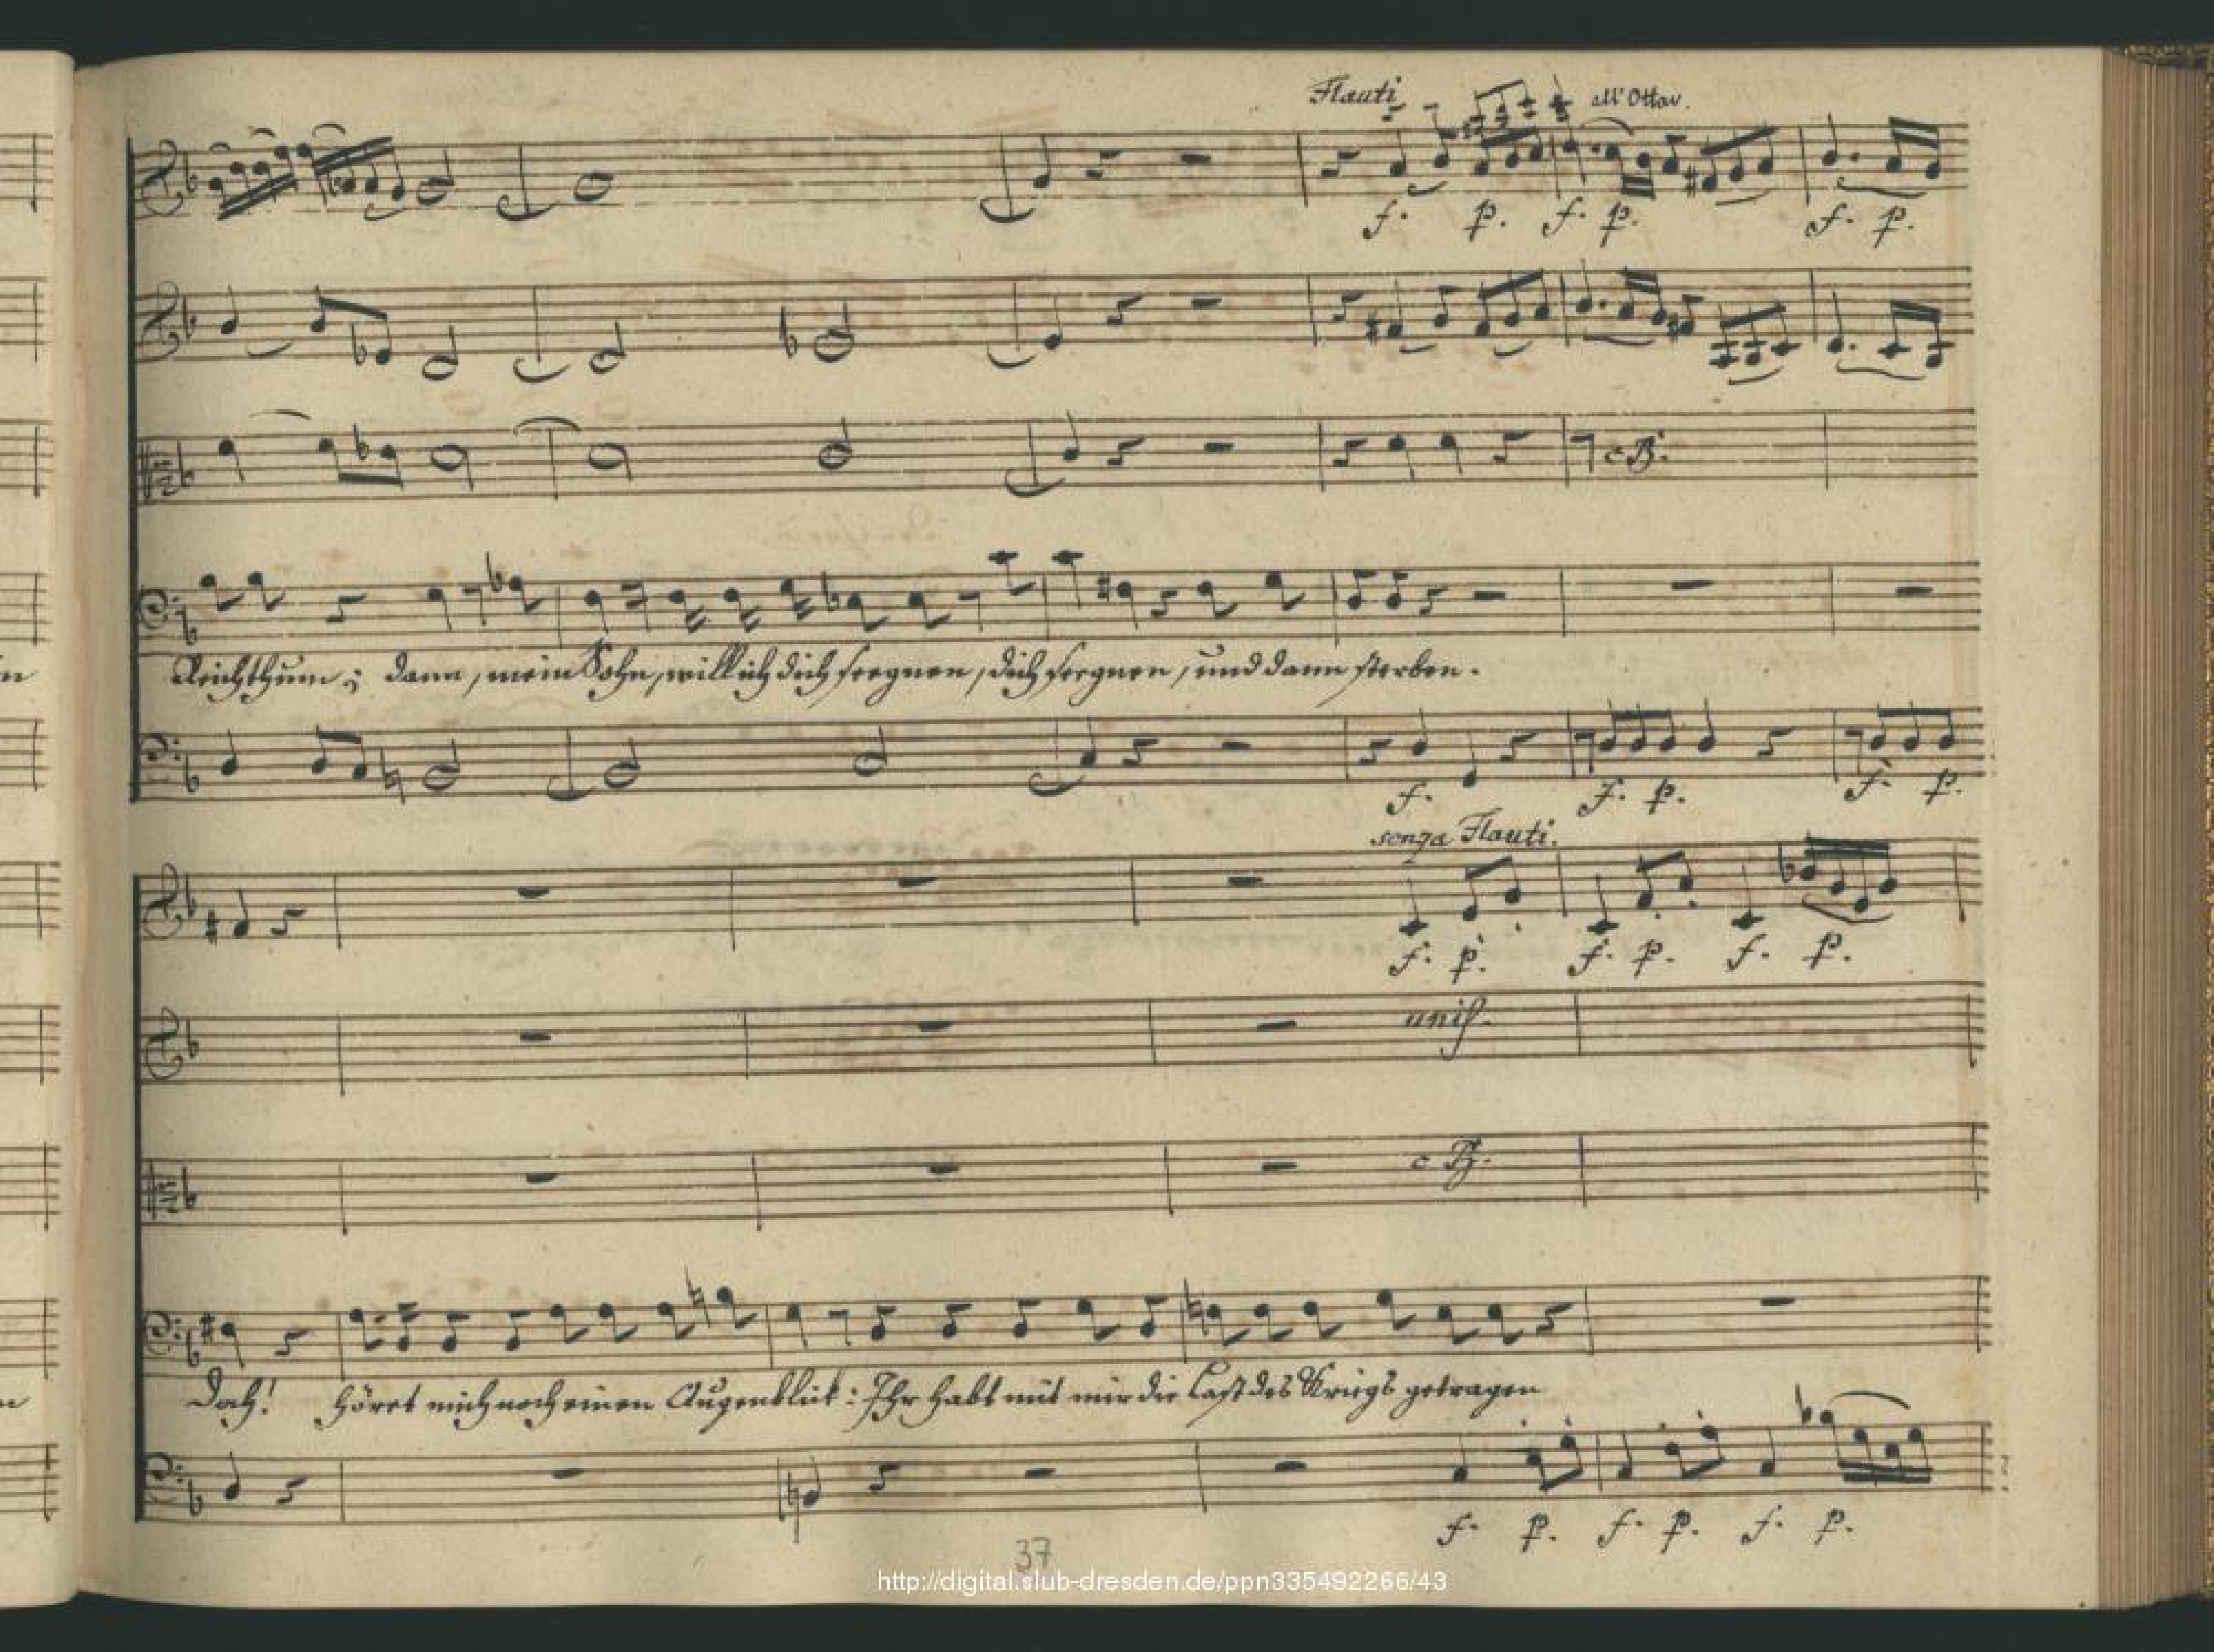 Flauti all' Ottav.
f. p. f. p. f. p.
c B.
Reichthum; dann, mein Sohn, will ich dich seegnen, dich seegnen, und dann sterben.
f. f. p. f. p.
senza Flauti.
f. p. f. p. f. p.
unis.
c B.
Doch! höret mich noch einen Augenblick: Ihr habt mit mir die Last des Kriegs getragen
f. p. f. p. f. p.
37
http://digital.slub-dresden.de/ppn335492266/43